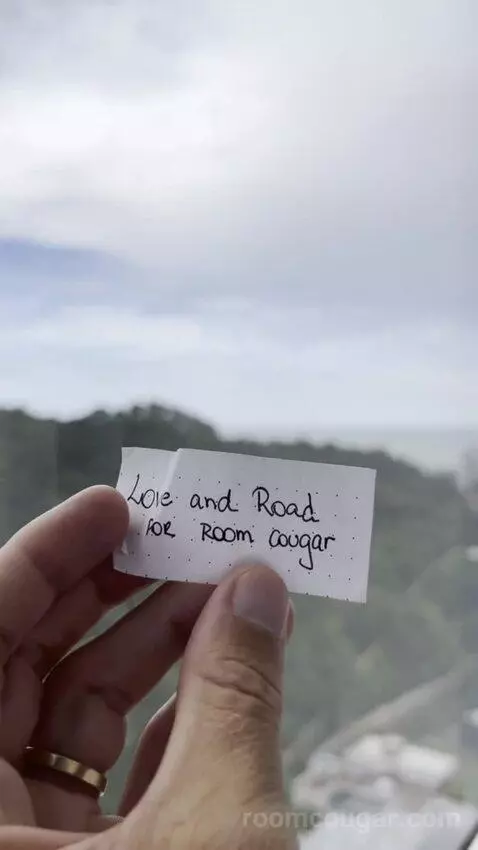 Love and Road
FOR ROOM Cougar
roomcougar.com